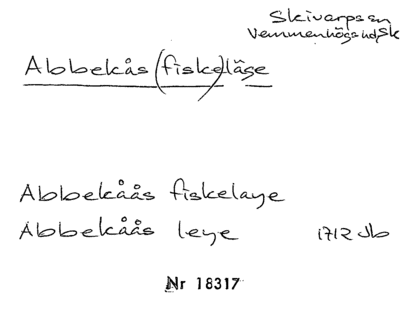 Skivarps sn
Vemmenhögs hd, Sk
Abbekås (fiske)läge
Abbekåås fiskelaye
Abbekåås leye 1712 Jb
Nr 18317